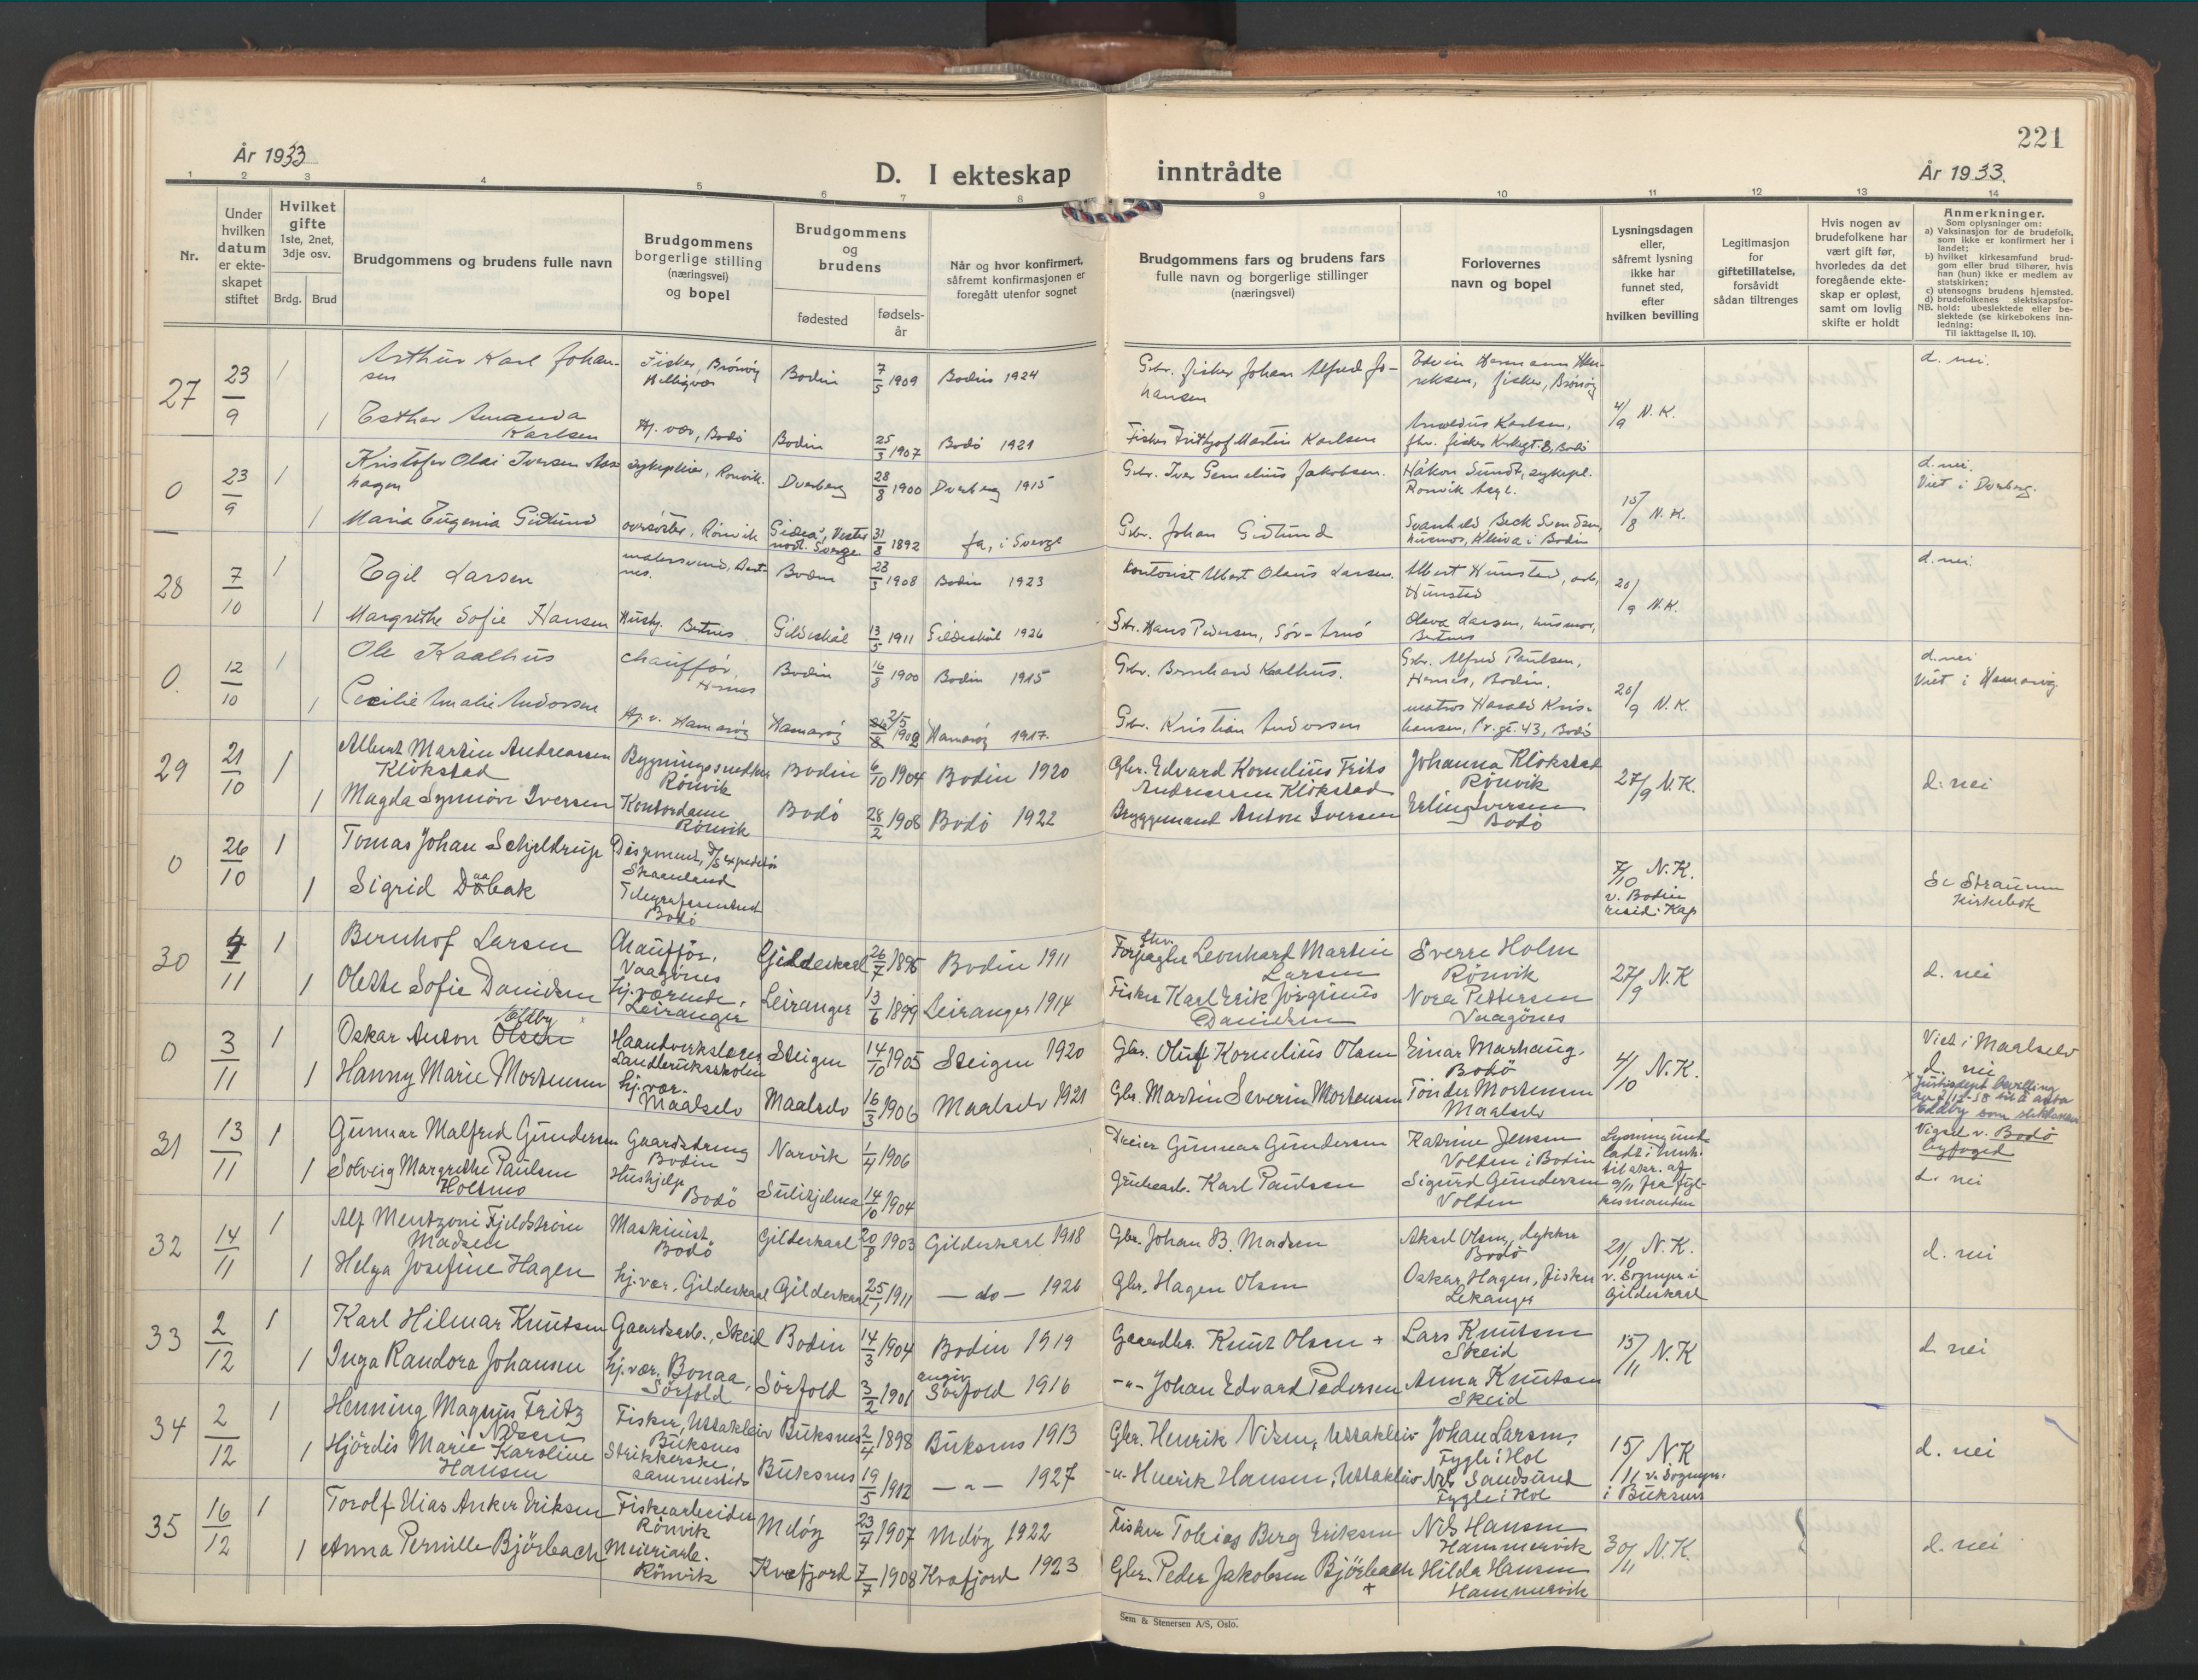 221
År 1933
D. I ekteskap inntrådte
År 1933.
1 2 3 4 5 6 7 8 9 10 11 12 13 14
Nr.
Under hvilken datum er ekteskapet stiftet
Hvilket gifte
1ste, 2net, 3dje osv.
Brdg. Brud
Brudgommens og brudens fulle navn
Brudgommens borgerlige stilling (næringsvei) og bopel
Brudgommens og brudens
fødested
fødselsår
Når og hvor konfirmert, såfremt konfirmasjonen er foregått utenfor sognet
Brudgommens fars og brudens fars fulle navn og borgerlige stillinger (næringsvei)
Forlovernes navn og bopel
Lysningsdagen eller, såfremt lysning ikke har funnet sted, efter hvilken bevilling
Legitimasjon for giftetillatelse, forsåvidt sådan tiltrenges
Hvis nogen av brudefolkene har vært gift før, hvorledes da det foregående ekteskap er opløst, samt om lovlig skifte er holdt
Anmerkninger.
Som oplysninger om:
a) Vaksinasjon for de brudefolk, som ikke er konfirmert her i landet;
b) hvilket kirkesamfund brudgom eller brud tilhører, hvis han (hun) ikke er medlem av statskirken;
c) utensogns brudens hjemsted.
d) brudefolkenes slektskapsforhold: ubeslektede eller beslektede (se kirkebokens innledning:
NB. Til iakttagelse II. 10).
27 23/9 1 Arthur Karl Johansen Fisker, Brönvig Helligvær Bodin 7/5 1909 Bodin 1924 Gbr. fisker Johan Alfred Johansen Edvin Hermann Henriksen, fisker, Brönvig d. nei.
1 Esther Amanda Karlsen Hj. vær, Bodö Bodin 25/3 1907 Bodö 1921 Fisker Frithjof Martin Karlsen Arnoldus Karlsen, fhv. fisker, Bodö 4/9 N.K.
0 23/9 1 Kristofer Olai Iversen Aasehagen sykepleier, Rönvik. Dverberg 28/8 1900 Dverberg 1915 Gbr. Iver Cornelius Jakobsen. Håkon Sundt, sykepl. Rönvik Asyl. d. nei. Viet i Dverberg.
1 Maria Eugenia Gidlund oversöster, Rönvik Gideå, Vesternorl. Sverge 31/8 1892 ja, i Sverge Gbr. Johan Gidlund Svanhild Beck Svendsen, husmor, Kleiva i Bodin 15/8 N.K.
28 7/10 1 Egil Larsen malersvend, Bertnes. Bodin 23/3 1908 Bodin 1923 Kontorist Albert Olaus Larsen. Albert Hunstad, arb. Hunstad d. nei.
1 Margrethe Sofie Hansen Hushj. Bertnes Gildeskål 13/5 1911 Gildeskål 1926 Gbr. Hans Pedersen, Sör-Arnö Olava Larsen, husmor, Bertnes 20/9 N.K.
0. 12/10 1 Ole Kaalhus chauffør, Hernes Bodin 16/8 1900 Bodin 1915 Gbr. Bernhard Kaalhus. Gbr. Alfred Paulsen, Hernes, Bodin. d. nei Viet i Hamarøy
1 Cecilie Amalie Andersen Hj. v. Hamarøy Hamarøy 2/5 1902 Hamarøy 1917. Gbr. Kristian Andersen matros Harald Kristiansen, Pr. gt. 43, Bodö 20/9 N.K.
29 21/10 1 Albert Martin Andreassen Klökstad Bygningssnedker Rönvik Bodin 6/10 1904 Bodin 1920 Gbr. Edvard Kornelius Frits Andreassen Klökstad Johanna Klökstad Rönvik 27/9 N.K. d. nei
1 Magda Synnöve Iversen Kontordame Rönvik Bodö 28/2 1908 Bodö 1922 Bryggemand Anton Iversen Erling Iversen Bodö
0 26/10 1 Tomas Johan Schjeldrup Disponent, D/S expeditör Skaanland 7/10 N.K. v. Bodin resid. Kap Se Straumen kirkebok
1 Sigrid Daabak Telegrafassistent Bodö
30 4/11 1 Bernhof Larsen Chauffør, Vaagönes Gildeskaal 26/7 1896 Bodin 1911 fhv. Forpagter Leonhard Martin Larsen Sverre Holm Rönvik 27/9 N.K d. nei
1 Olette Sofie Danielsen Hj. værende, Leiranger Leiranger 13/6 1899 Leiranger 1914 Fisker Karl Erik Jörginus Danielsen Nora Pettersen Vaagönes
0 3/11 1 Oskar Anton Olsen Eldby Haandverkslærer Landbruksskolen Steigen 14/10 1905 Steigen 1920 Gbr. Oluf Kornelius Olsen Einar Marhaug. Bodö 4/10 N.K. Viet i Maalselv d. nei
1 Hanny Marie Mortensen hj. vær. Maalselv Maalselv 16/3 1906 Maalselv 1921 Gbr. Martin Severin Mortensen Tönder Mortensen Maalselv x Justisdept. bevilling av 2/12-38 til å anta Eldby som slektsnavn
31 13/11 1 Gunnar Malfred Gundersen Gaardsdreng Bodin Narvik 1/4 1906 Dreier Gunnar Gundersen Katrine Jensen Volden i Bodin Lysning undladt i henh. til skr. af 9/11 fra fylkesmanden Vigsel v. Bodö byfoged d. nei
1 Solveig Margrethe Paulsen Holsmo Hushjelp Bodö Sulitjelma 14/10 1904 Grubearb. Karl Paulsen Sigurd Gundersen Volden
32 14/11 1 Alf Mentzoni Fjeldström Madsen Maskinist Bodö Gildeskaal 20/8 1903 Gildeskaal 1918 Gbr. Johan B. Madsen Aksel Olsen, dykker Bodö 21/10 N.K. v. Sognepr. i Gildeskaal d. nei
1 Helga Josefine Hagen hj. vær, Gildeskaal Gildeskaal 25/1 1911 — do — 1926 Gbr. Hagen Olsen Oskar Hagen, fisker Lekanger
33 2/12 1 Karl Hilmar Knutsen Gaardsarb., Skeid Bodin 14/3 1904 Bodin 1919 Gaardbr. Knut Olsen + Lars Knutsen Skeid 15/11 N.K d. nei
1 Inga Randora Johansen hj. vær. Bonaa, Sörfold Sörfold 3/2 1901 angiv. Sörfold 1916 -"- Johan Edvard Pedersen Anna Knutsen Skeid
34 2/12 1 Henning Magnus Fritz Nilsen Fisker, Uttakleiv Buksnes Buksnes 2/4 1898 Buksnes 1913 Gbr. Henrik Nilsen, Uttakleiv Johan Larsen, Fygle i Hol 15/11 N.K v. Sognepr. i Buksnes d. nei
1 Hjördis Marie Karoline Hansen Strikkerske, sammesteds Buksnes 19/5 1912 — " — 1927 -"- Henrik Hansen, Uttakleiv Nils Sandsund Fygle i Hol
35 16/12 1 Torolf Elias Anker Eriksen Fiskearbeider Rönvik Melöy 23/4 1907 Melöy 1922 Fisker Tobias Berg Eriksen Nils Hansen Hammervik 30/11 N.K. d. nei
1 Anna Pernille Björbach Meieriarb. Rönvik Kvefjord 7/7 1908 Kvæfjord 1923 Gbr. Peder Jakobsen Björbach + Hilda Hansen Hammervik
Sem & Stenersen A/S, Oslo.